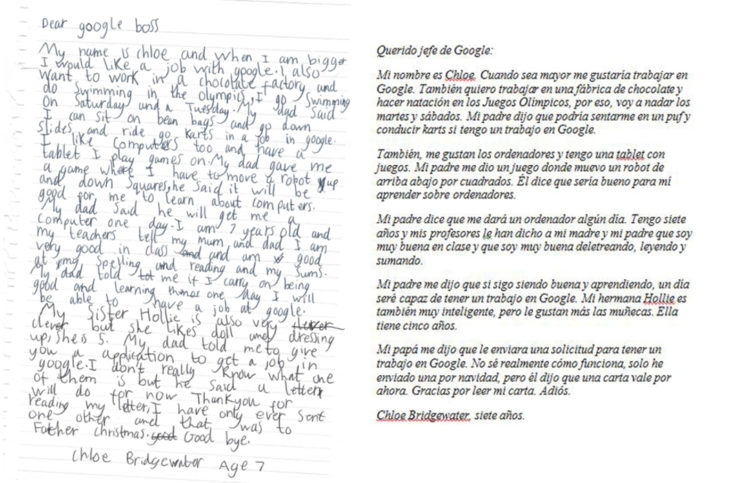 Dear google boss
My name is chloe and when I am bigger
I would like a job with google. I also
want to work in a chocolate factory and
do swimming in the olympics, I go swimming
on Saturday and a Tuesday. My dad said
I can sit on bean bags and go down
slides and ride go karts in a job in google.
I like computers too and have a
tablet I play games on. My dad gave me
a game where I have to move a robot up
and down squares, he said it will be
good for me to learn about computers.
My dad said he will get me a
computer one day. I am 7 years old and
my teachers tell my mum and dad I am
very good in class and am good
at my spelling and reading and my sums.
My dad told me if I carry on being
good and learning one day I will
be able to have a job at google.
My sister Hollie is also very
clever but she likes doll and dressing
up, she is 5. My dad told me to give
you a application to get a job in
google. I don't really know what one
of them is but he said a letter
will do for now. Thankyou for
reading my letter, I have only ever sent
one other and that was to
Father christmas. good Good bye.
Chloe Bridgewater Age 7
Querido jefe de Google:
Mi nombre es Chloe. Cuando sea mayor me gustaría trabajar en
Google. También quiero trabajar en una fábrica de chocolate y
hacer natación en los Juegos Olímpicos, por eso, voy a nadar los
martes y sábados. Mi padre dijo que podría sentarme en un puf y
conducir karts si tengo un trabajo en Google.
También, me gustan los ordenadores y tengo una tablet con
juegos. Mi padre me dio un juego donde muevo un robot de
arriba abajo por cuadrados. Él dice que sería bueno para mi
aprender sobre ordenadores.
Mi padre dice que me dará un ordenador algún día. Tengo siete
años y mis profesores le han dicho a mi madre y mi padre que soy
muy buena en clase y que soy muy buena deletreando, leyendo y
sumando.
Mi padre me dijo que si sigo siendo buena y aprendiendo, un día
seré capaz de tener un trabajo en Google. Mi hermana Hollie es
también muy inteligente, pero le gustan más las muñecas. Ella
tiene cinco años.
Mi papá me dijo que le enviara una solicitud para tener un
trabajo en Google. No sé realmente cómo funciona, solo he
enviado una por navidad, pero él dijo que una carta vale por
ahora. Gracias por leer mi carta. Adiós.
Chloe Bridgewater, siete años.